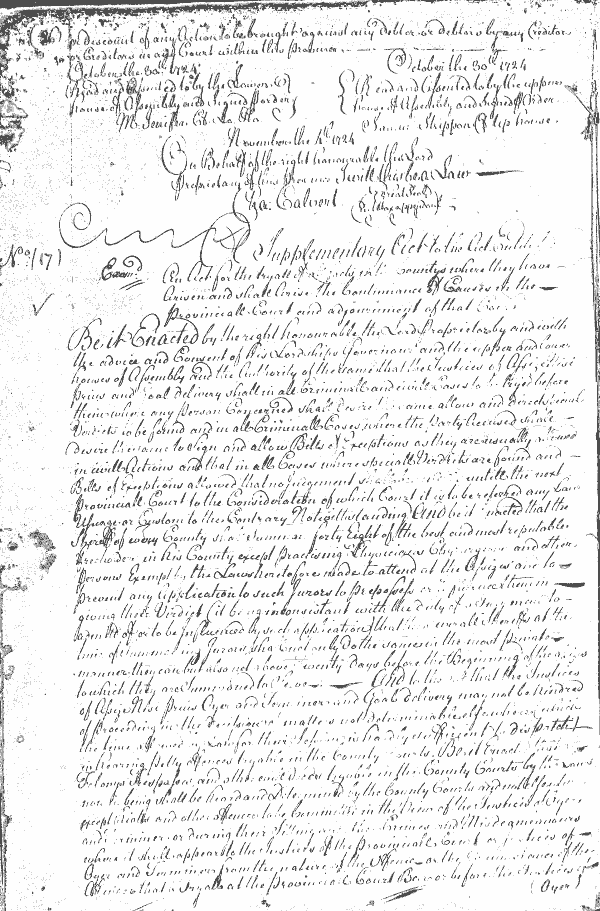 (26) or discount of any Action to be brought against any debtor or debtors by any Creditor
or Creditors in any Court within this province
October the 30th 1724
Read and assented to by the Lower
House of Assembly and signed p order
October the 30th 1724
Read and assented to by the upper
house of Assembly and signed p Order
Saml Skippon Cl Up house
November the 4th 1724
On Behalf of the right honourable the Lord
Proprietary of this province I will this be a Law
Cha: Calvert
No (17)
A Supplementary Act to the Act Entituled
Exam'd
An Act for the tryall of in the countys where they have
Arisen and shall Arise the Continuance of Causes in the
Provinciall Court and adjournment of that Court
Be it Enacted by the right honourable the Lord Proprietary by and with
the advice and Consent of his Lordships Governour and the upper and lower
houses of Assembly and the Authority of the same that the Justices of Assize nisi
prius and Goal delivery shall in all Criminall and civill Cases to be tryed before
them where any Person Concerned shall desire the same allow and direct speciall
Verdicts to be found and in all Criminall Cases where the Party Accused shall
desire the same to sign and allow Bills of Exceptions as they are usually allowed
in civill Actions and that in all Cases where speciall Verdicts are found and
Bills of Exceptions allowed that no judgement shall untill the next
Provinciall Court to the Consideration of which Court it is to be referred any Law
Usage or Custom to the Contrary Notwithstanding And be it Enacted that the
Sheriff of every County shall summon forty Eight of the best and most reputable
freeholders in his County except Practising Physicians Clergymen and other
Persons Exempt by the Laws heretofore made to attend at the Assizes and to
prevent any Application to such Jurors to prepossess or influence them in
giving their Verdict (it being inconsistant with the duty of a Jury man to
be influenced by such application) that the severall Sheriffs at the
time of summoning Jurors shall not only do the same in the most private
manner they can but also not above twenty days before the Beginning of the Assizes
to which they are summoned to serve And to the End that the Justices
of Assize Nisi Prius Oyer and Terminer and Goal delivery may not be hindred
of proceeding in the decision of matters not determinable elsewhere which
the time allowed by Law for their sitting is hardly sufficient to dispatch
in hearing petty offences tryable in the County Courts Be it Enacted that all
Felonys Trespasses and other evill deeds tryable in the County Courts by the Laws
now in being shall be heard and determined by the County Courts and not elsewhere
except Riots and other offences to be Committed in the View of the Justices of Oyer
and Terminer or during their sitting and the Crimes and Misdemeanours
where it shall appear to the Justices of the Provinciall Court or Justices of
Oyer and Terminer from the nature of the Offence or the Circumstances of the
Offence that a tryall at the Provinciall Court Bar or before the Justices of
(Oyer)